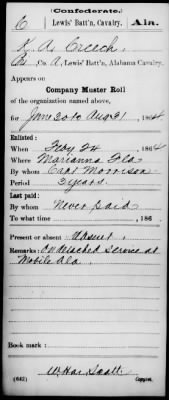 (Confederate.)
C Lewis' Batt'n, Cavalry. Ala.
K. A. Creech,
Co. A, Lewis' Batt'n, Alabama Cavalry.
Appears on
Company Muster Roll
of the organization named above,
for June 30 to Aug 31, 1864.
Enlisted:
When Feby 24, 1864
Where Marianna Fla
By whom Capt Morrison
Period 3 years.
Last paid:
By whom Never paid
To what time , 186 .
Present or absent Absent
Remarks: On detached service at
Mobile Ala.
Book mark:
(642) Copyist.